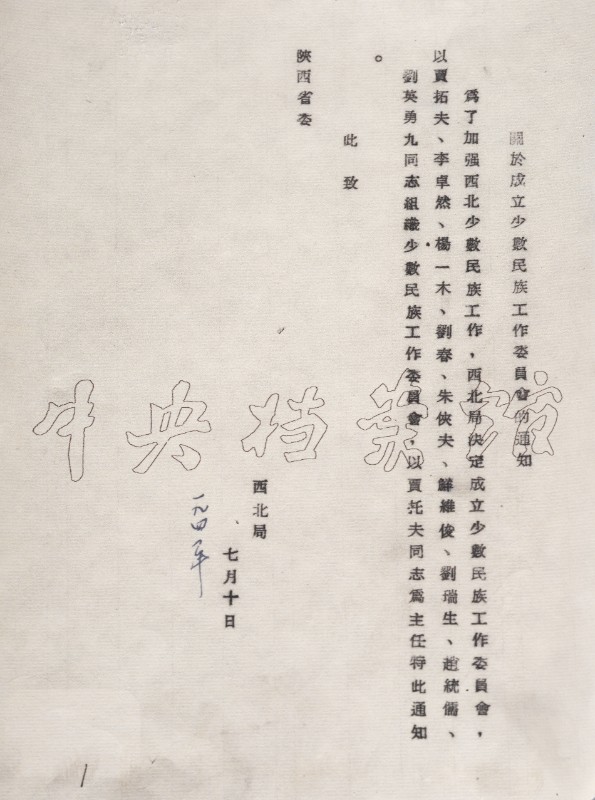 關於成立少數民族工作委員會的通知
爲了加强西北少數民族工作，西北局決定成立少數民族工作委員會，
以賈拓夫、李卓然、楊一木、劉春、朱俠夫、鮮維俊、劉瑞生、趙統儒、
劉英勇九同志組織少數民族工作委員會，以賈托夫同志爲主任特此通知
。
此致
陝西省委
西北局
七月十日
一九四一年
1
中央档案館